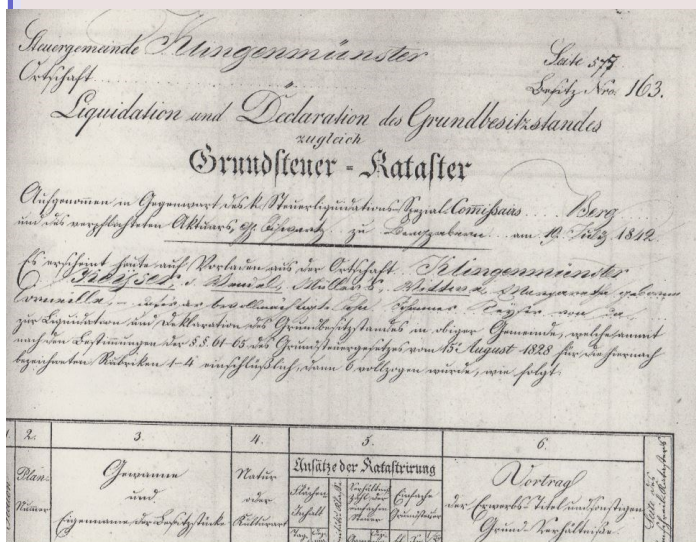 Steuergemeinde Klingenmünster
Seite 577
Ortschaft
Besitz Nro. 163.
Liquidation und Declaration des Grundbesitzstandes
zugleich
Grundsteuer-Kataster
Aufgenommen in Gegenwart des k. Steuerliquidations-Spezial-Comißaärs Berg
und des verpflichteten Aktuars, zu Bergzabern am 19. 1842
Es erscheint heute auf Vorladen aus der Ortschaft Klingenmünster
Keysser, Müllers, Wittwe, Margaretha geborne
zur Liquidation und Deklaration des Grundbesitzstandes in obiger Gemeinde, welche sammt
nach den Bestimmungen der §.§. 61-65 des Grundsteuergesetzes vom 15 August 1828 für die hiernach
bezeichneten Rubriken 1-4 einschlüßlich, dann 6 vollzogen wurde, wie folgt:
2. 3. 4. 5. 6.
Plan-
Numer
Gewanne
und
Eigenname der Besitzstücke
Natur
oder
Kulturart
Ansätze der Katastrirung
Flächen-
Inhalt
Verhältniß
zahl der
einfachen
Steuer
Einfache
Grundsteuer
Vortrag
der Erwerbs-Titel und sonstigen
Grund-Verhältniße.